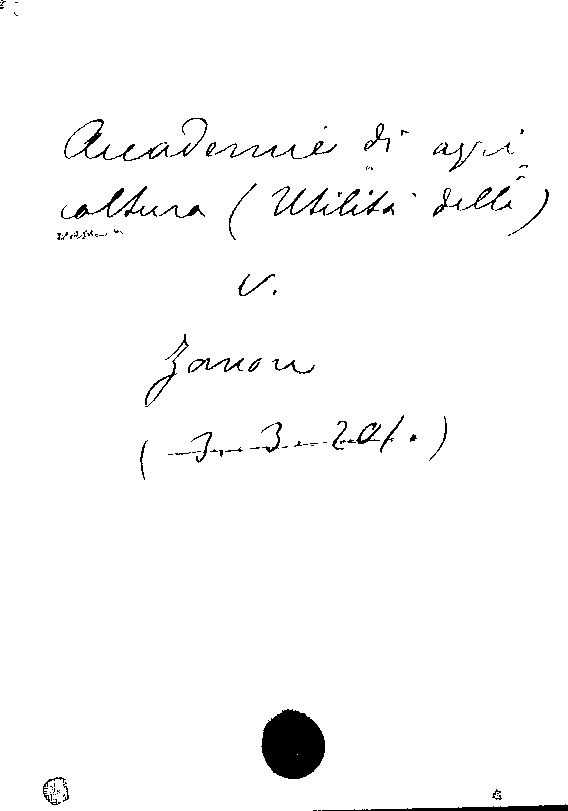 Accademie di agri
coltura (Utilità delle)
v.
Zanon
(3.3.201.)